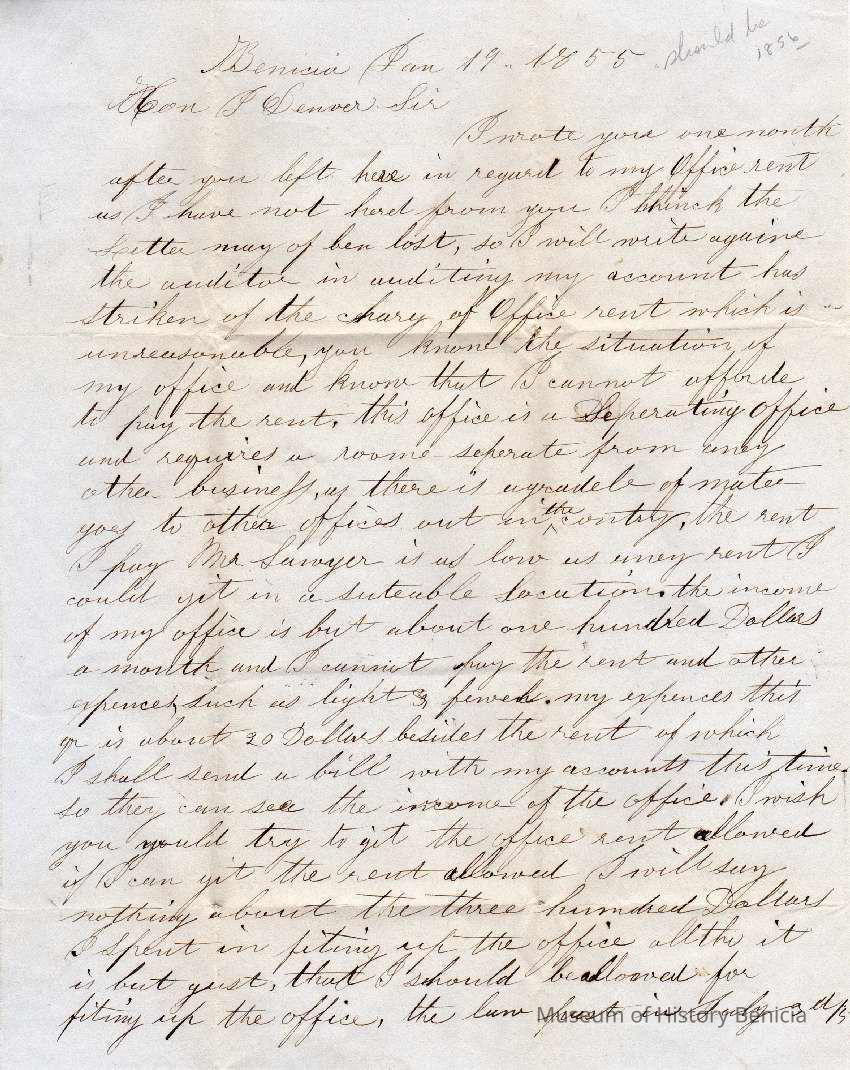 Benicia Jan 19. 1855
should be
1856
Hon J Denver Sir
I wrote you one month
after you left here in regard to my Office rent
as I have not herd from you I thinck the
Letter may of ben lost, so I will write againe
the auditor in auditing my account has
striken of the charg of Office rent which is
unreasonable, you know the situation of
my office and know that I cannot afforde
to pay the rent. this office is a Seperating office
and requires a roome seperate from aney
other business, as there is a gradele of mater
goes to other offices out in the contry, the rent
I pay Mr Sawyer is as low as aney rent I
could git in a suteable Location. the income
of my office is but about one hundred Dollars
a month and I cannot pay the rent and other
expences such as light & fewel. my expences this
qr is about 20 Dollars besides the rent of which
I shall send a bill with my accounts this time
so they can see the income of the office. I wish
you would try to git the office rent allowed
if I can git the rent allowed I will say
nothing about the three hundred Dollars
I spent in fiting up the office altho it
is but gust, that I should be allowed for
fiting up the office. the law past in July
Museum of History Benicia